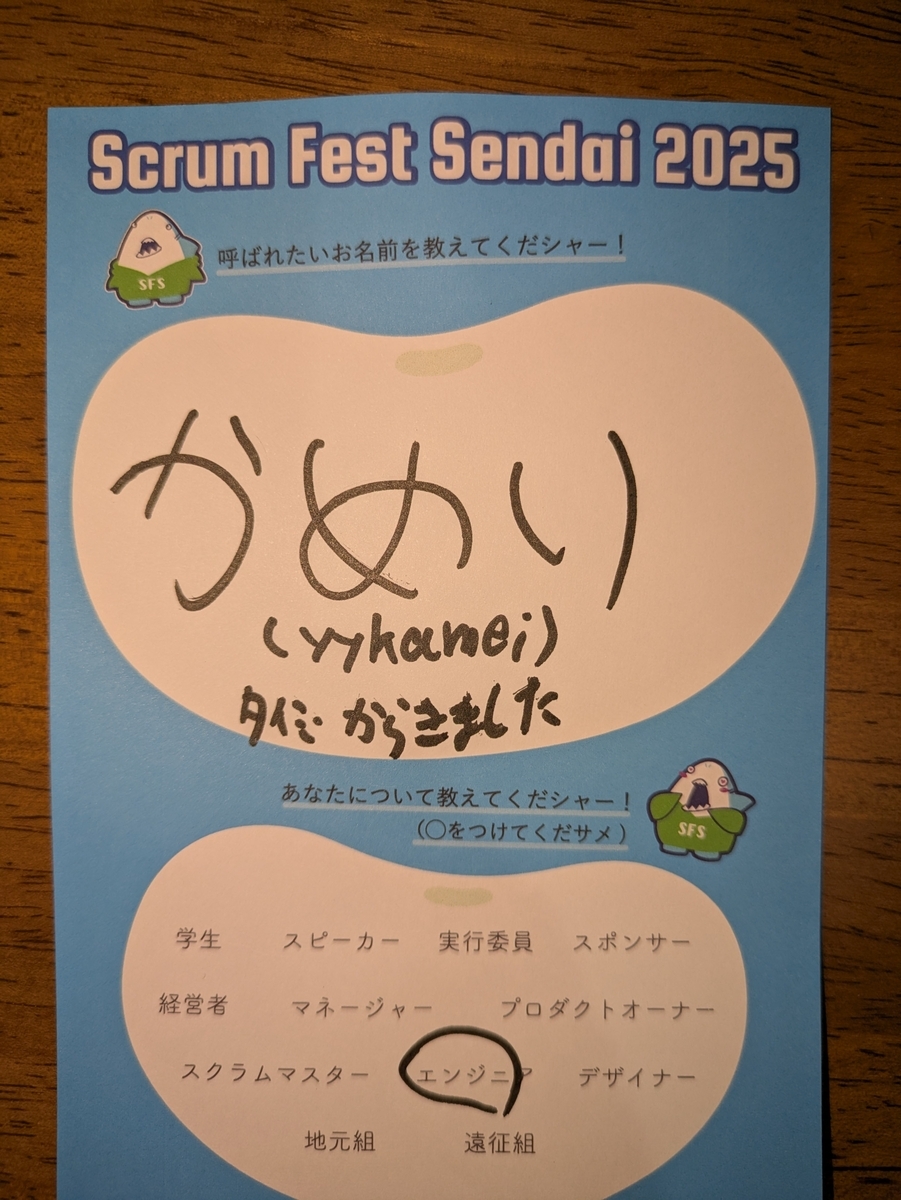 Scrum Fest Sendai 2025
SFS
呼ばれたいお名前を教えてくだシャー！
かめり
(yykamei)
からきました
あなたについて教えてくだシャー！
(○をつけてくだサメ)
SFS
学生 スピーカー 実行委員 スポンサー
経営者 マネージャー プロダクトオーナー
スクラムマスター エンジニア デザイナー
地元組 遠征組